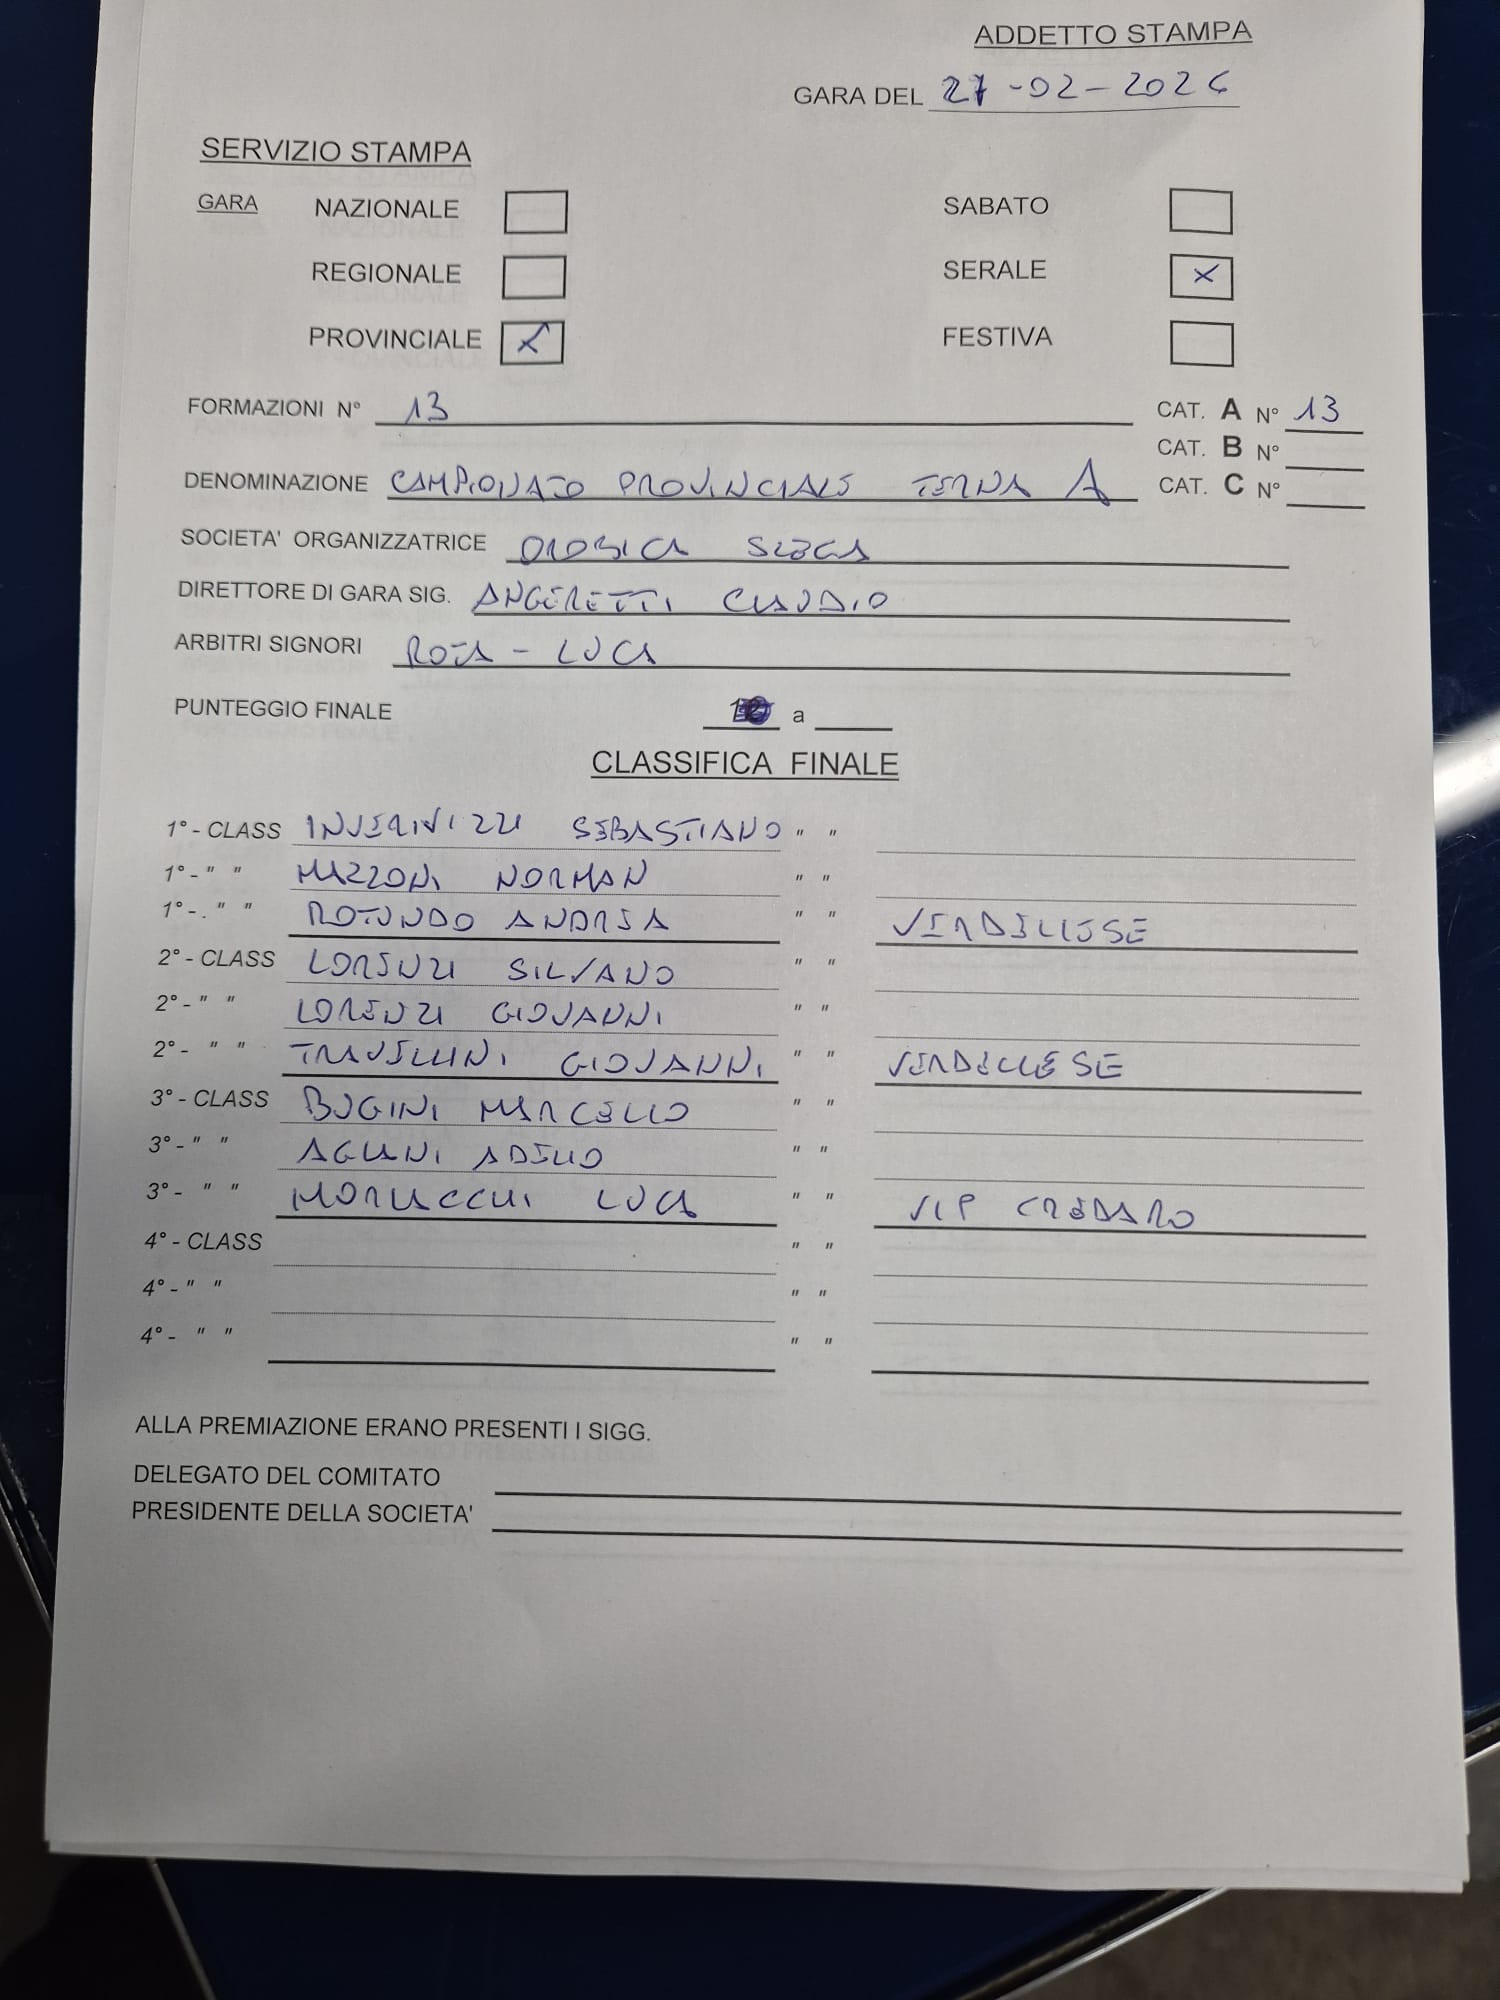 ADDETTO STAMPA
GARA DEL 27-02-2026
SERVIZIO STAMPA
GARA NAZIONALE SABATO
REGIONALE SERALE X
PROVINCIALE X FESTIVA
FORMAZIONI N° 13 CAT. A N° 13
CAT. B N°
DENOMINAZIONE CAMPIONATO PROVINCIALE TERNA A CAT. C N°
SOCIETA' ORGANIZZATRICE OROBICA SLEGA
DIRETTORE DI GARA SIG. ANGERETTI CLAUDIO
ARBITRI SIGNORI ROTA - LUCA
PUNTEGGIO FINALE a
CLASSIFICA FINALE
1° - CLASS INVERNIZZI SEBASTIANO " "
1° - " " MAZZONI NORMAN " "
1° -. " " ROTUNDO ANDREA " " VERDELLESE
2° - CLASS LORENZI SILVANO " "
2° - " " LORENZI GIOVANNI " "
2° - " " TRAVELLINI GIOVANNI " " VERDELLESE
3° - CLASS BUGINI MARCELLO " "
3° - " " AGLANI ADELIO " "
3° - " " LUCA " " VIP CREDARO
4° - CLASS " "
4° - " " " "
4° - " " " "
ALLA PREMIAZIONE ERANO PRESENTI I SIGG.
DELEGATO DEL COMITATO
PRESIDENTE DELLA SOCIETA'